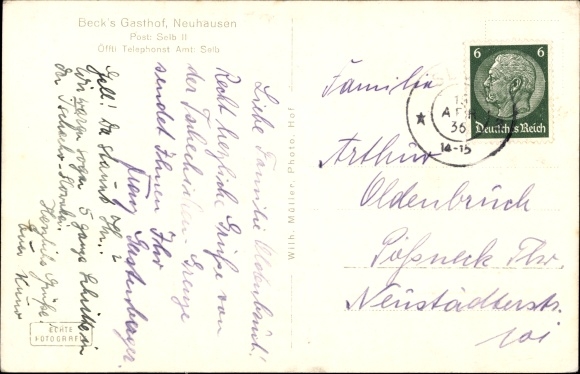 Beck's Gasthof, Neuhausen
Post: Selb II
Öfftl Telephonst Amt: Selb
Liebe Familie Oldenbruch!
Recht herzliche Grüße von
der Tschechischen Grenze
sendet Ihnen Ihr
Franz
Gell! Da staunt Ihr.
Wir waren sogar 5 ganze Schritte in
der Tschecho-Slowakei.
Herzliche Grüße
Euer
ECHTE
FOTOGRAFIE
Wilh. Müller, Photo, Hof
6 6
Deutsches Reich
36
14-15
Familie
Arthur
Oldenbruch
Pößneck Thür.
Neustädterstr.
101